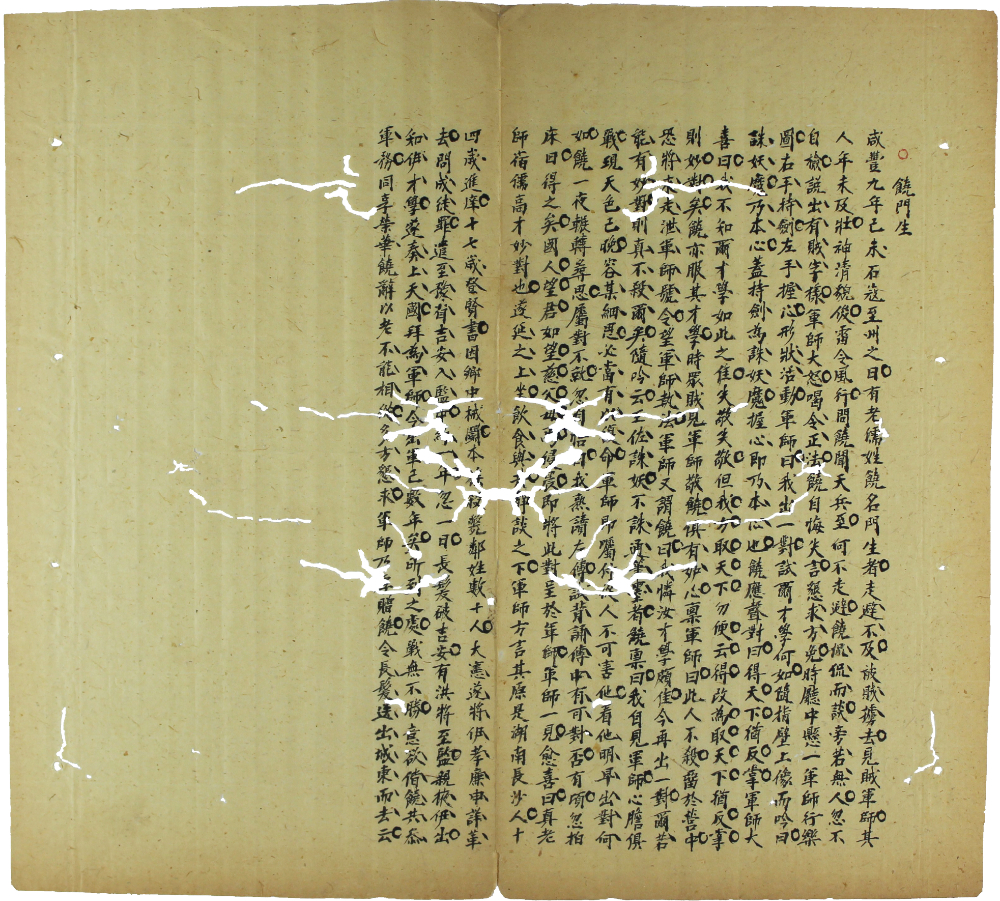 饒門生
咸豐九年己未石寇至州之日有老儒姓饒名門生者走避不及被賊擄去見賊軍師其
人年未及壯神清貌俊雷令風行問饒聞天兵至何不走避饒侃侃而談旁若無人忽不
自檢說出有賊字樣軍師大怒喝令正法饒自悔失言懇求方免時廳中懸一軍師行樂
圖右手持劍左手握心形狀活動軍師曰我出一對試爾才學何如隨指壁上像而吟曰
誅妖魔乃本心蓋持劍為誅妖魔握心即乃本心也饒應聲對曰得天下猶反掌軍師大
喜曰我不知爾才學如此之佳失敬失敬但我方取天下勿便云得改為取天下猶反掌
則妙對矣饒亦服其才學時眾賊見軍師敬饒俱有妒心稟軍師曰此人不殺留於營中
恐將來走泄軍師號令望軍師執法軍師又謂饒曰我憐汝才學頗佳今再出一對爾若
能有妙對則真不殺爾矣隨吟云王佐誅妖不誅者饒稟曰我自見軍師心膽俱
戰現天色已晚容某細思必當有以復命軍師即囑行人不可害他看他明早出對何
如饒一夜輾轉尋思屬對不就忽自悟曰我熟讀左傳試背誦傳中有可對否有頃忽拍
床曰得之矣國人望君如望慈父母焉侵晨即將此對呈於軍師軍師一見愈喜曰真老
師宿儒高才妙對也遂延之上坐飲食與共談之下軍師方言其原是湖南長沙人十
四歲進庠十七歲登賢書因鄉中械鬭本族殺斃鄰姓數十人大憲遂將伊孝廉申詳革
去問成徒罪遣至發脊吉安入監中一年忽一日長髮破吉安有洪將至監親挾伊出
和伊才學遂奏上天國拜為軍師今出軍已數年矣所到之處戰無不勝意欲偕饒共参
軍務同享榮華饒辭以老不能相從多方懇求軍師乃贈饒令長髮送出城東而去云